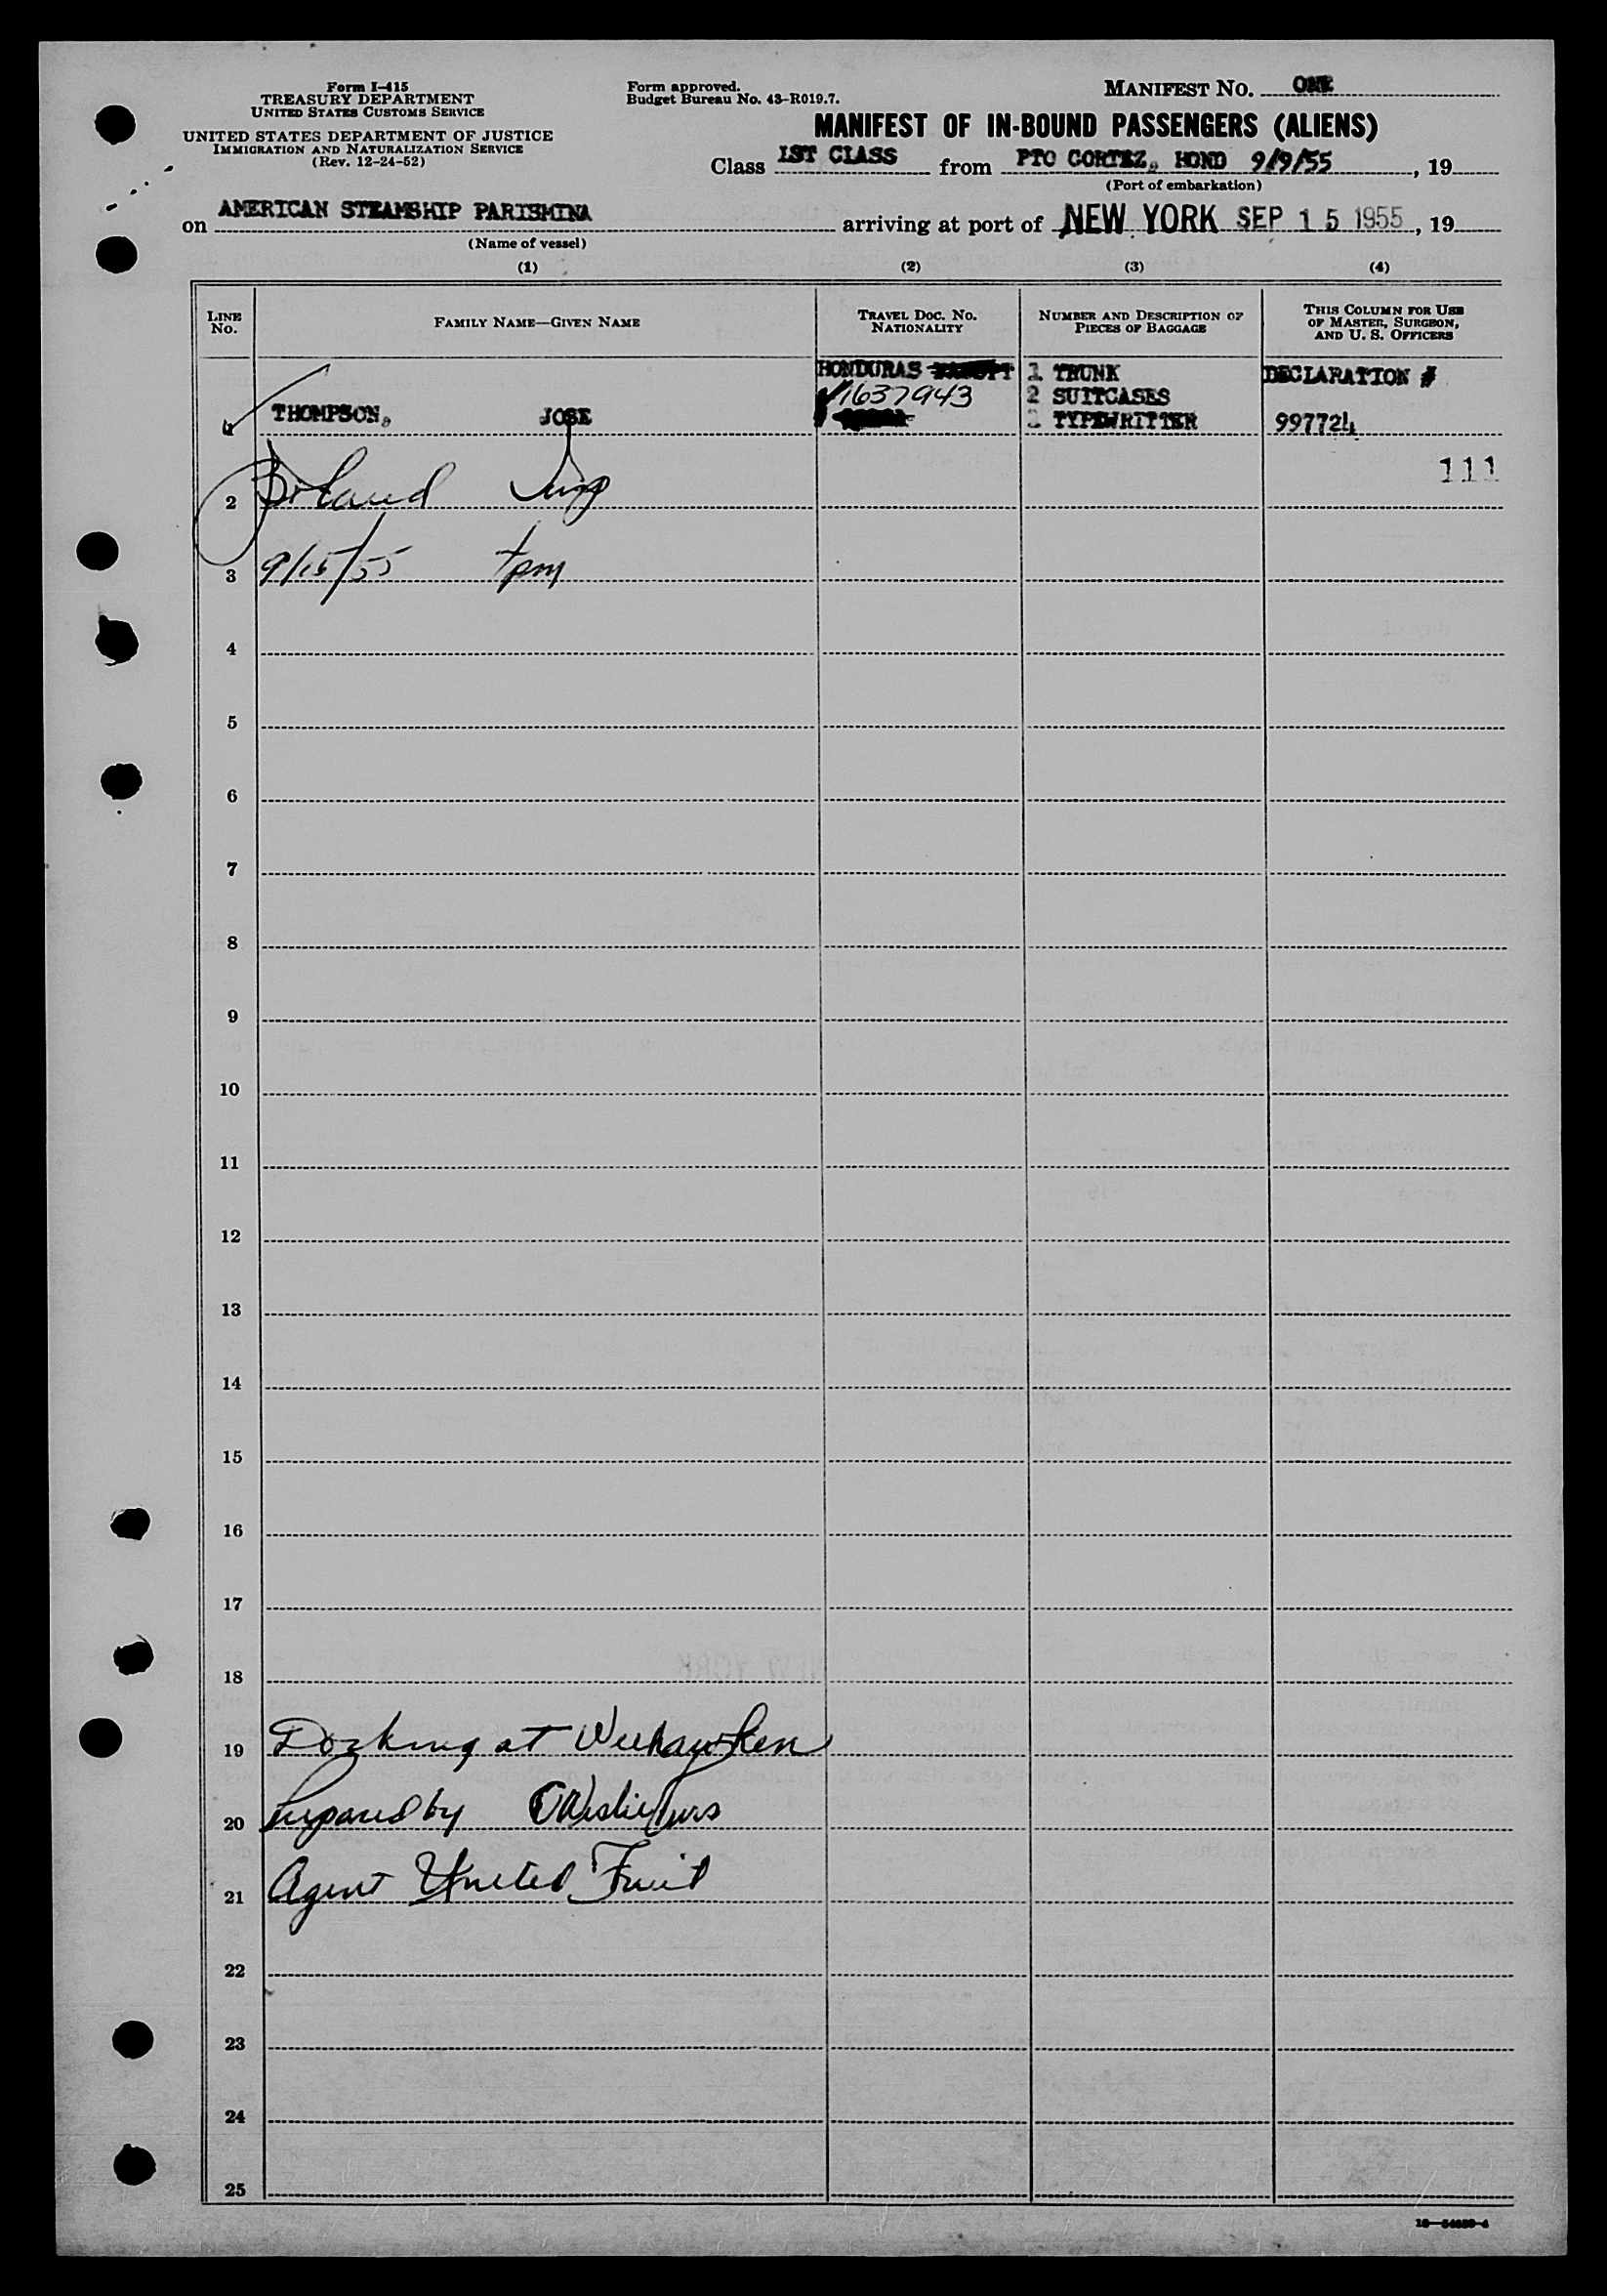 Form I-415
TREASURY DEPARTMENT
UNITED STATES CUSTOMS SERVICE
UNITED STATES DEPARTMENT OF JUSTICE
IMMIGRATION AND NATURALIZATION SERVICE
(Rev. 12-24-52)
Form approved.
Budget Bureau No. 43-R019.7.
MANIFEST NO. ONE
MANIFEST OF IN-BOUND PASSENGERS (ALIENS)
Class 1ST CLASS from PTO CORTEZ, HOND 9/9/55, 19
(Port of embarkation)
on AMERICAN STEAMSHIP PARISMINA arriving at port of NEW YORK SEP 15 1955, 19
(Name of vessel)
(1) (2) (3) (4)
LINE No. FAMILY NAME—GIVEN NAME TRAVEL DOC. NO. NATIONALITY NUMBER AND DESCRIPTION OF PIECES OF BAGGAGE THIS COLUMN FOR USE OF MASTER, SURGEON, AND U. S. OFFICERS
HONDURAS 1 TRUNK DECLARATION #
1637943 2 SUITCASES
THOMPSON, JOSE TYPEWRITTER 997724
111
2
3 9/15/55
4
5
6
7
8
9
10
11
12
13
14
15
16
17
18
19 Docking at Weehawken
20 Prepared by
21 Agent United Fruit
22
23
24
25